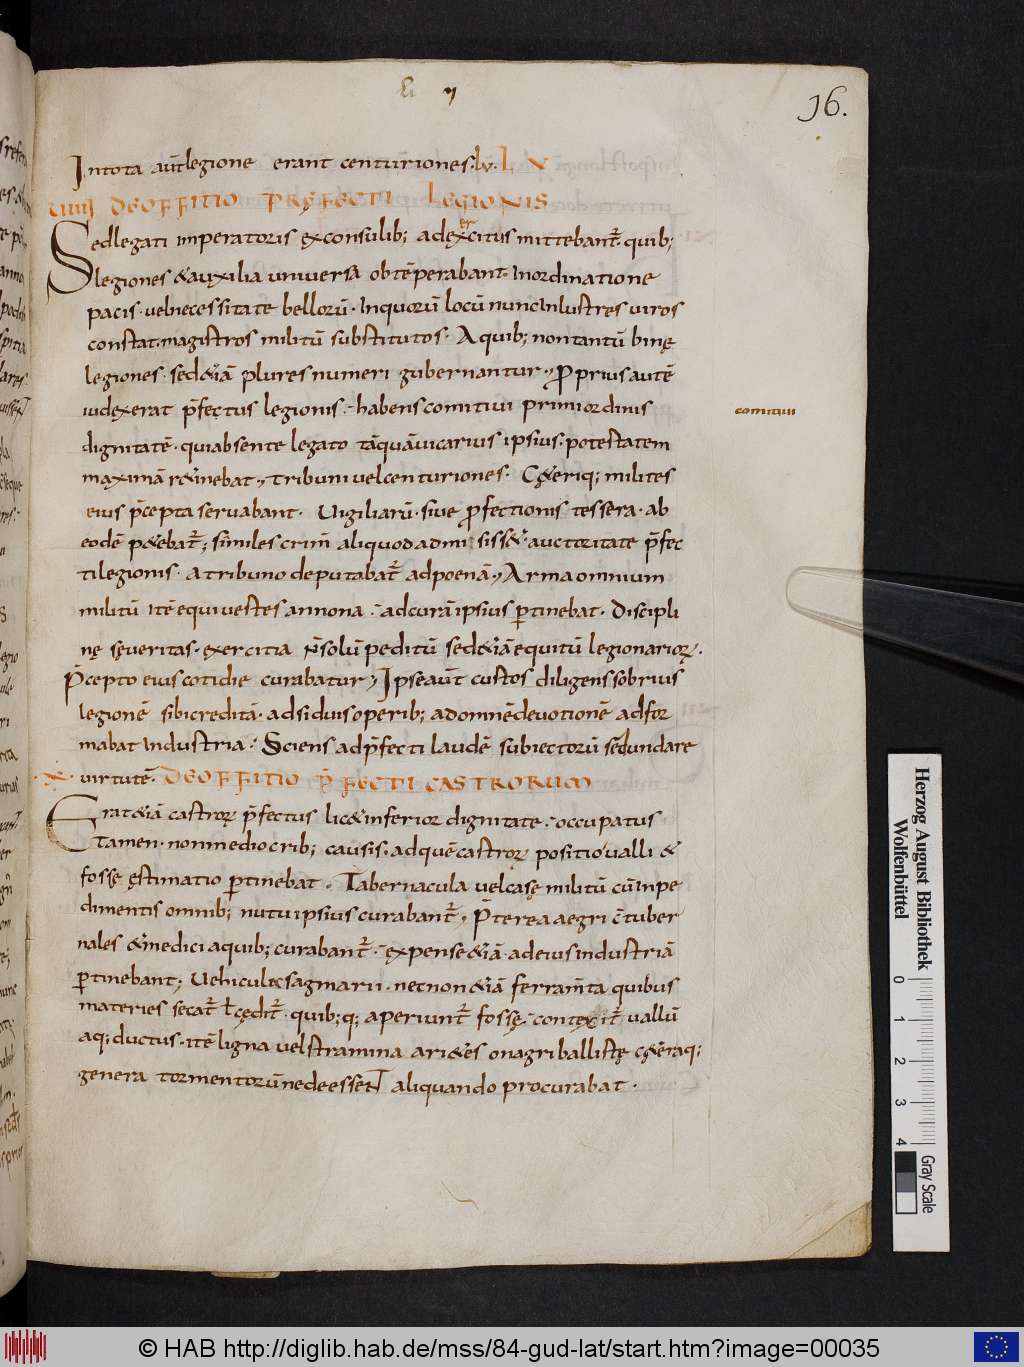 16.
In tota aut̄ legione erant centuriones. lv. LV
VIIII DE OFFITIO PRĘFECTI LEGIONIS
Sed legati imperatoris ex consulib; ad exercitus mittebant̄. quib;
legiones & auxilia universa obtēperabant. In ordinatione
pacis. vel necessitate bellorū. In quorū locū nunc inlustres viros
constat. magistros militū substitutos. A quib; non tantū binę
legiones. sed &iā plures numeri gubernantur. Proprius autē
iudex erat p̄fectus legionis. habens comitivi primi ordinis
comitiui
dignitatē. qui absente legato tāquā vicarius ipsius. potestatem
maximā r&inebat. Tribuni vel centuriones. C&eriq; milites
eius p̄cepta servabant. Vigiliarū. sive profectionis tessera. ab
eodē p&ebat̄; Si miles crim̄ aliquod admisiss&. auctoritate p̄fec
ti legionis. a tribuno deputabat̄ ad poenā. Arma omnium
militū itē equi vestes annona. ad curā ipsius p̄tinebat. Discipli
nę sęveritas. exercitia n̄ solū peditū sed &iā equitū legionarioꝝ.
P̄cepto eius cotidie curabatur. Ipse aut̄ custos diligens sobrius
legionē sibi creditā. adsiduis operib; ad omnē devotionē ad for
mabat industria. Sciens ad p̄fecti laudē subiectorū redundare
X virtutē. DE OFFITIO P̄FECTI CASTRORUM
Erat &iā castroꝝ p̄fectus lic& inferior dignitate. occupatus
tamen. non mediocrib; causis. ad quē castroꝝ positio valli &
fossę ęstimatio p̄tinebat. Tabernacula vel casę militū cū inpe
dimentis omnib; nutu ipsius curabant̄. P̄terea aegri c̄tuber
nales & medici a quib; curabant̄. expense &iā. ad eius industriā
p̄tinebant; Vehicula sagmarii. necnon &iā ferram̄ta quibus
materies secat̄ ł cędit̄. quib;q; aperiunt̄ fossę. contexit̄ vallū
aq; ductus. itē ligna vel stramina ari&es onagri ballistę c&eraq;
genera tormentorū ne deessent aliquando procurabat.
Herzog August Bibliothek
Wolfenbüttel
0 1 2 3 4
Gray Scale
© HAB http://diglib.hab.de/mss/84-gud-lat/start.htm?image=00035